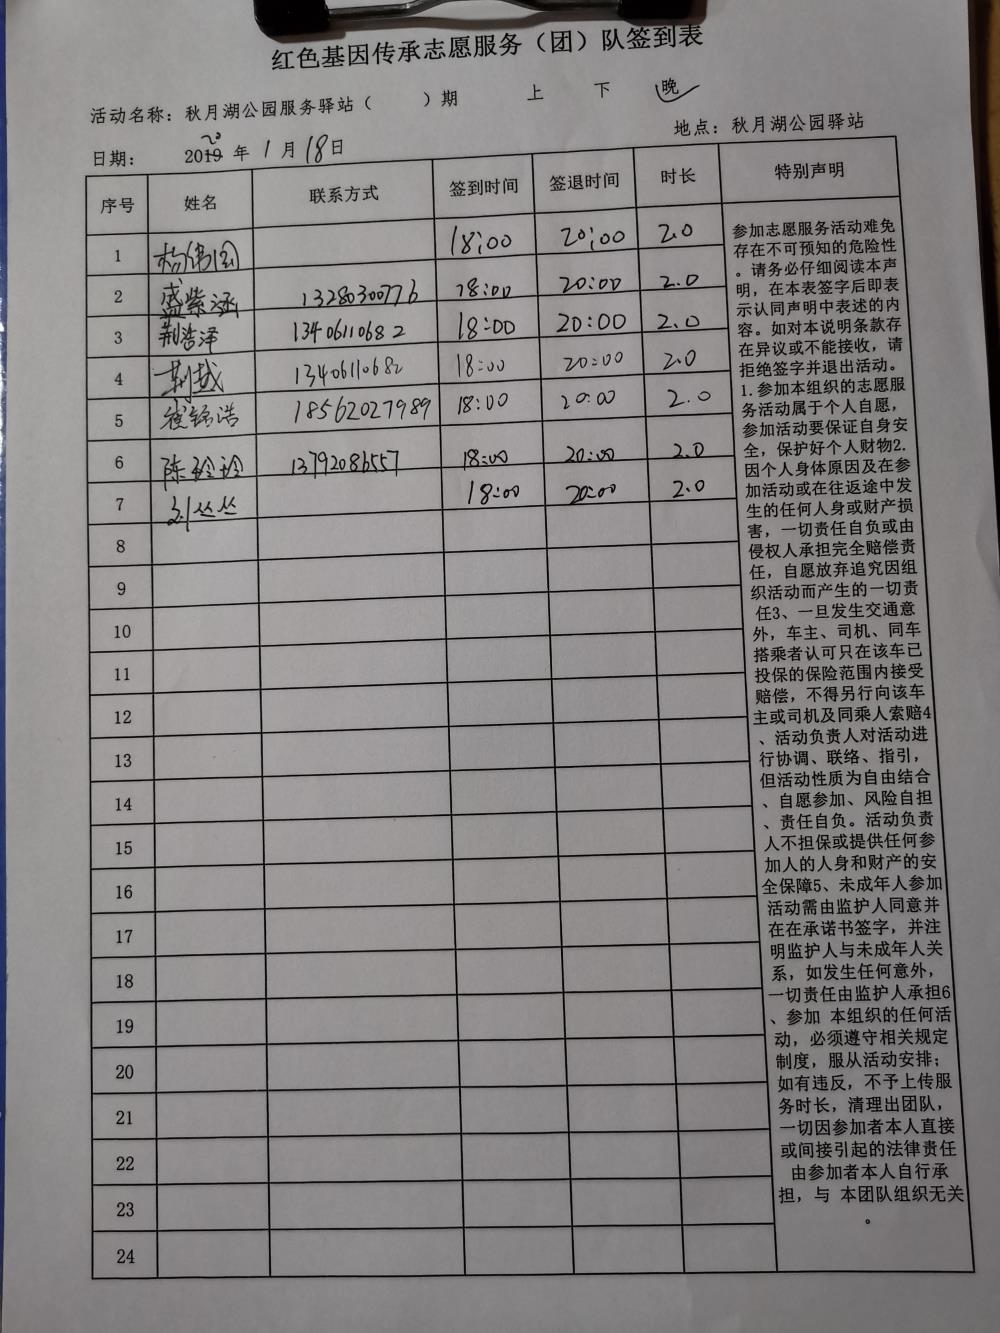 红色基因传承志愿服务（团）队签到表
活动名称：秋月湖公园服务驿站（ ）期 上 下 晚
日期： 2019 20 年 1 月 18 日 地点：秋月湖公园驿站
序号 姓名 联系方式 签到时间 签退时间 时长 特别声明
1 杨伟国 18:00 20:00 2.0
2 盛紫涵 13280300776 18:00 20:00 2.0
3 荆浩泽 13406110682 18:00 20:00 2.0
4 荆越 13406110682 18:00 20:00 2.0
5 锦浩 18562027989 18:00 20:00 2.0
6 陈玲玲 13792086557 18:00 20:00 2.0
7 刘丛丛 18:00 20:00 2.0
8
9
10
11
12
13
14
15
16
17
18
19
20
21
22
23
24
参加志愿服务活动难免
存在不可预知的危险性
。请务必仔细阅读本声
明，在本表签字后即表
示认同声明中表述的内
容。如对本说明条款存
在异议或不能接收，请
拒绝签字并退出活动。
1.参加本组织的志愿服
务活动属于个人自愿，
参加活动要保证自身安
全，保护好个人财物2.
因个人身体原因及在参
加活动或在往返途中发
生的任何人身或财产损
害，一切责任自负或由
侵权人承担完全赔偿责
任，自愿放弃追究因组
织活动而产生的一切责
任3、一旦发生交通意
外，车主、司机、同车
搭乘者认可只在该车已
投保的保险范围内接受
赔偿，不得另行向该车
主或司机及同乘人索赔4
、活动负责人对活动进
行协调、联络、指引，
但活动性质为自由结合
、自愿参加、风险自担
、责任自负。活动负责
人不担保或提供任何参
加人的人身和财产的安
全保障5、未成年人参加
活动需由监护人同意并
在在承诺书签字，并注
明监护人与未成年人关
系，如发生任何意外，
一切责任由监护人承担6
、参加 本组织的任何活
动，必须遵守相关规定
制度，服从活动安排；
如有违反，不予上传服
务时长，清理出团队，
一切因参加者本人直接
或间接引起的法律责任
由参加者本人自行承
担，与 本团队组织无关
。